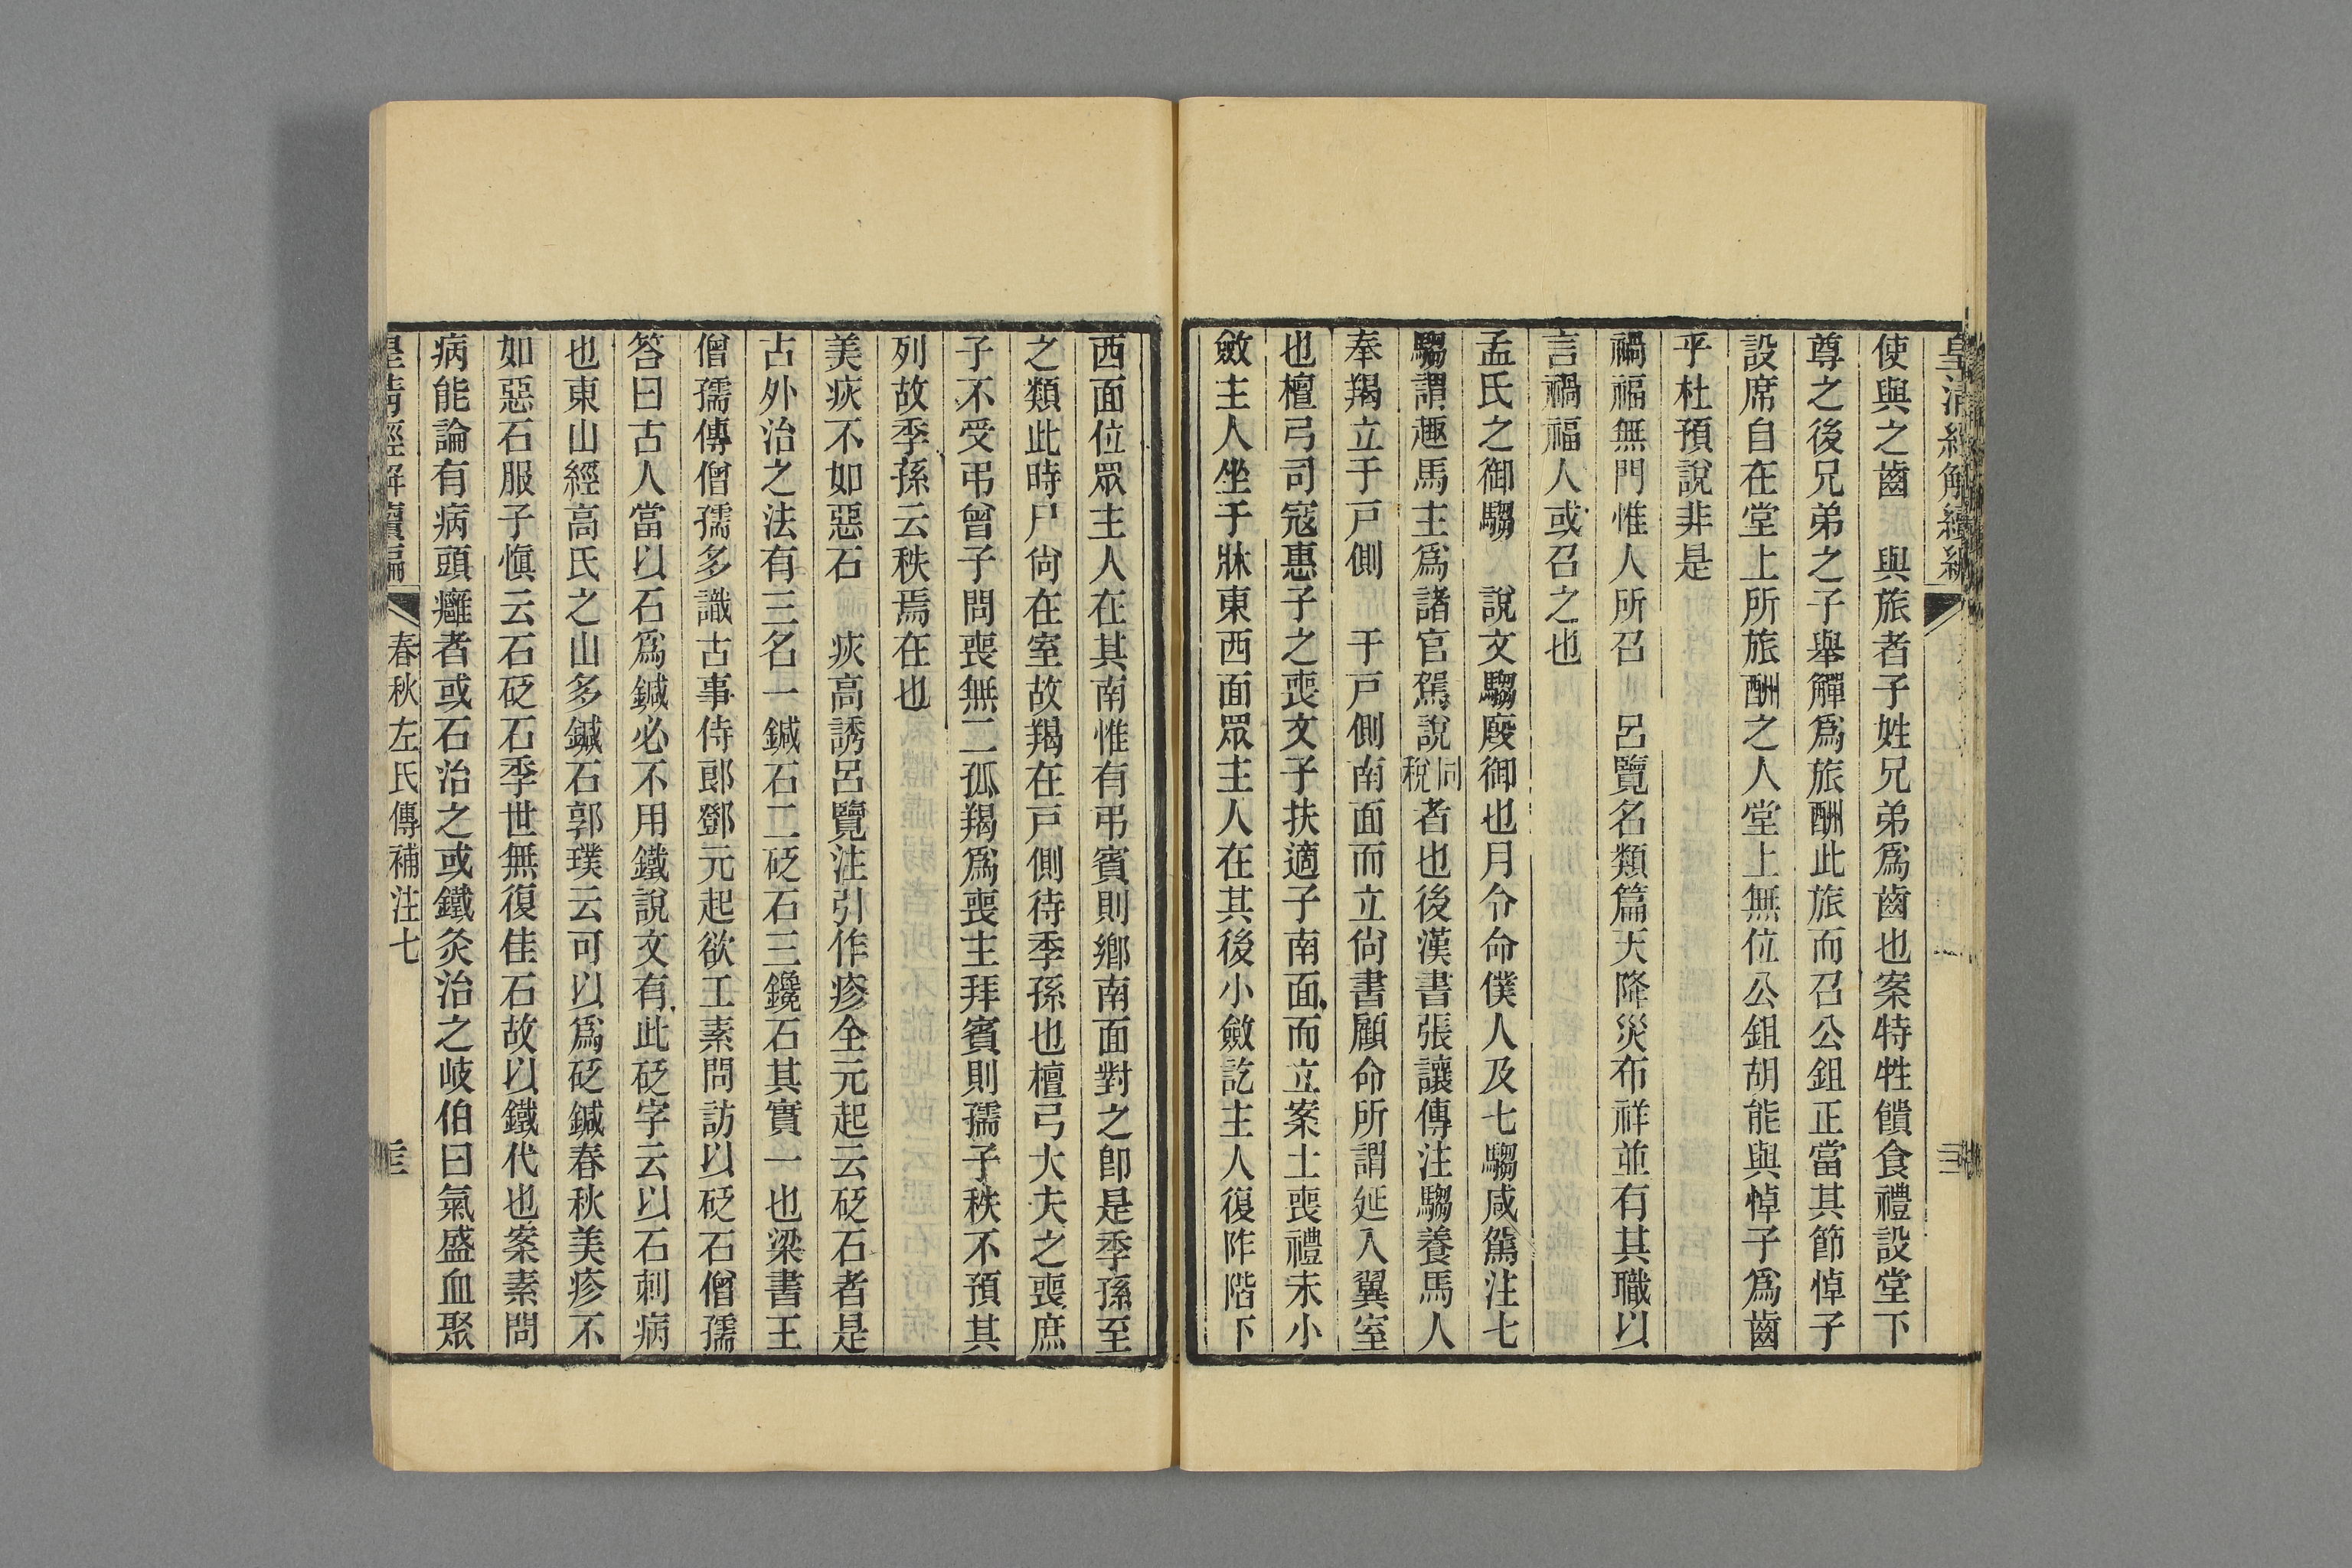 皇清經解續編
使與之齒　與旅者子姓兄弟爲齒也案特牲饋食禮設堂下
尊之後兄弟之子舉觶爲旅酬此旅而召公鉏正當其節悼子
設席自在堂上所旅酬之人堂上無位公鉏胡能與悼子爲齒
乎杜預說非是
禍福無門惟人所召　呂覽名類篇天降災布祥並有其職以
言禍福人或召之也
孟氏之御騶　說文騶廄御也月令命僕人及七騶咸駕注七
騶謂趣馬主爲諸官駕說同稅者也後漢書張讓傳注騶養馬人
奉羯立于戸側　于戸側南面而立尙書顧命所謂延入翼室
也檀弓司寇惠子之喪文子扶適子南面而立案士喪禮未小
斂主人坐于牀東西面眾主人在其後小斂訖主人復阼階下
西面位眾主人在其南惟有弔賓則鄉南面對之卽是季孫至
之類此時尸尙在室故羯在戸側待季孫也檀弓大夫之喪庶
子不受弔曾子問喪無二孤羯爲喪主拜賓則孺子秩不預其
列故季孫云秩焉在也
美疢不如惡石　疢高誘呂覽注引作疹全元起云砭石者是
古外治之法有三名一鍼石二砭石三鑱石其實一也梁書王
僧孺傳僧孺多識古事侍郞鄧元起欲工素問訪以砭石僧孺
答曰古人當以石爲鍼必不用鐵說文有此砭字云以石刺病
也東山經高氏之山多鍼石郭璞云可以爲砭鍼春秋美疹不
如惡石服子愼云石砭石季世無復佳石故以鐵代也案素問
病能論有病頭癰者或石治之或鐵灸治之岐伯曰氣盛血聚
皇清經解續編　春秋左氏傳補注七